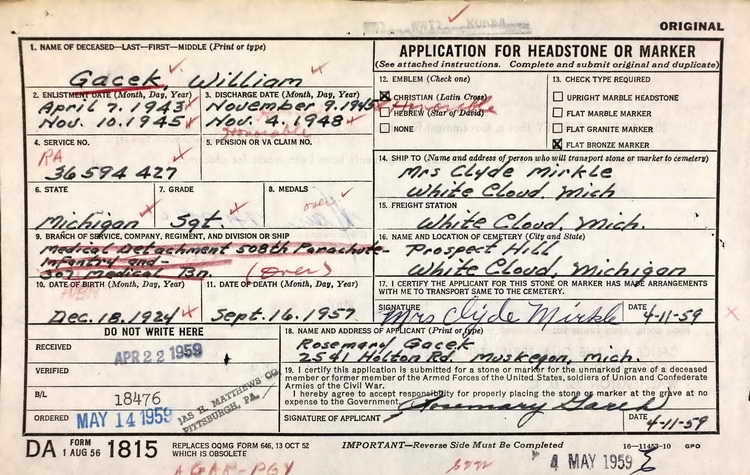 ORIGINAL
1. NAME OF DECEASED—LAST—FIRST—MIDDLE (Print or type)
Gacek, William
APPLICATION FOR HEADSTONE OR MARKER
(See attached instructions. Complete and submit original and duplicate)
2. ENLISTMENT DATE (Month, Day, Year)
April 7, 1943
Nov. 10, 1945
3. DISCHARGE DATE (Month, Day, Year)
November 9, 1945
Honorable
Nov. 4, 1948
Honorable
12. EMBLEM (Check one)
CHRISTIAN (Latin Cross)
HEBREW (Star of David)
NONE
13. CHECK TYPE REQUIRED
UPRIGHT MARBLE HEADSTONE
FLAT MARBLE MARKER
FLAT GRANITE MARKER
FLAT BRONZE MARKER
4. SERVICE NO.
RA
36 594 427
5. PENSION OR VA CLAIM NO.
14. SHIP TO (Name and address of person who will transport stone or marker to cemetery)
Mrs Clyde Mirkle
White Cloud, Mich
6. STATE
Michigan
7. GRADE
Sgt.
8. MEDALS
(over)
15. FREIGHT STATION
White Cloud, Mich.
9. BRANCH OF SERVICE, COMPANY, REGIMENT, AND DIVISION OR SHIP
Medical Detachment 508th Parachute
Infantry and-
307 Medical Bn.
(over)
16. NAME AND LOCATION OF CEMETERY (City and State)
Prospect Hill
White Cloud, Michigan
10. DATE OF BIRTH (Month, Day, Year)
Dec. 18, 1924
11. DATE OF DEATH (Month, Day, Year)
Sept. 16, 1957
17. I CERTIFY THE APPLICANT FOR THIS STONE OR MARKER HAS MADE ARRANGEMENTS
WITH ME TO TRANSPORT SAME TO THE CEMETERY.
SIGNATURE
Mrs Clyde Mirkle
DATE
4-11-59
DO NOT WRITE HERE
RECEIVED
APR 22 1959
VERIFIED
B/L
18476
ORDERED
MAY 14 1959
JAS H. MATTHEWS CO.
PITTSBURGH, PA.
18. NAME AND ADDRESS OF APPLICANT (Print or type)
Rosemary Gacek
2541 Holton Rd. Muskegon, Mich.
19. I certify this application is submitted for a stone or marker for the unmarked grave of a deceased
member or former member of the Armed Forces of the United States, soldiers of Union and Confederate
Armies of the Civil War.
I hereby agree to accept responsibility for properly placing the stone or marker at the grave at no
expense to the Government.
SIGNATURE OF APPLICANT
Rosemary Gacek
DATE
4-11-59
DA FORM 1 AUG 56 1815
REPLACES OQMG FORM 646, 13 OCT 52
WHICH IS OBSOLETE
IMPORTANT—Reverse Side Must be Completed
16—11453-10 GPO
4 MAY 1959